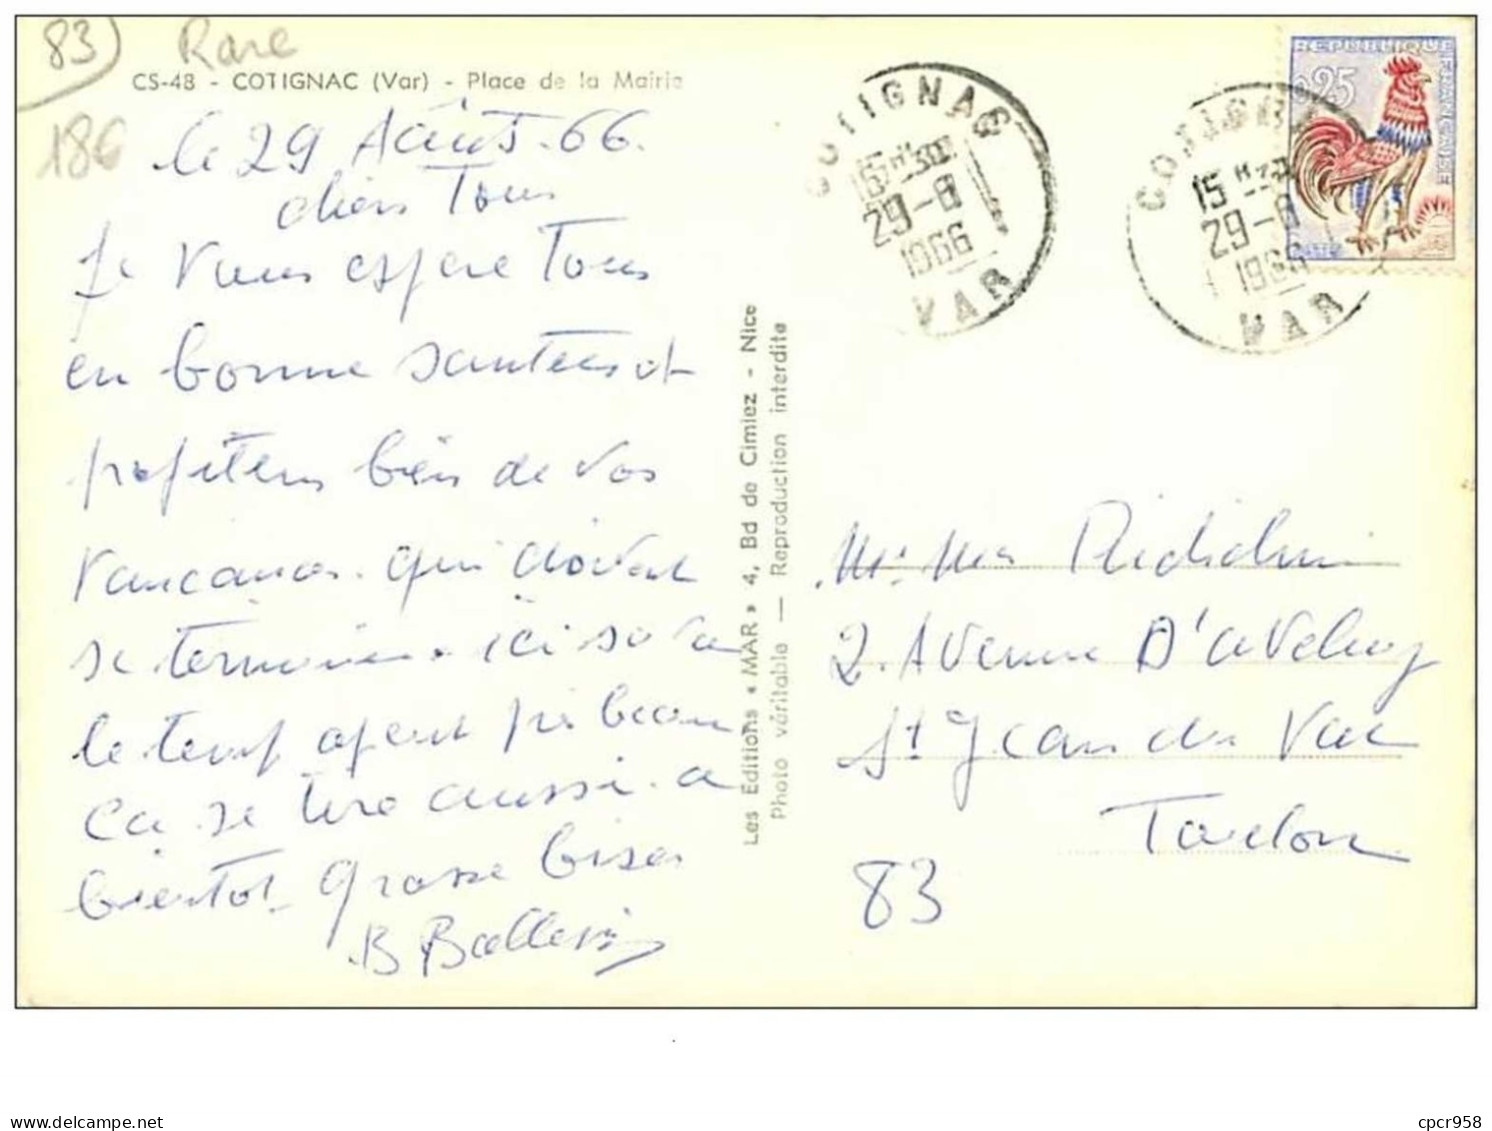 83) Rare
CS-48 - COTIGNAC (Var) - Place de la Mairie
186
le 29 Août. 66.
chers Tous
Je vous espère Tous
en bonne santées et
profitens bien de vos
vancances. qui doivent
se terminer. ici sa va
le temp
Ca se tire aussi. a
bientot. Grosse bises
B
Les Editions « MAR » 4, Bd de Cimiez - Nice
Photo véritable — Reproduction interdite
COTIGNAC
15H30
29-8
1966
VAR
COTIGNAC
15H30
29-8
1966
VAR
REPUBLIQUE FRANÇAISE
0,25
POSTES
Mr. Mes
2. Avenue D'
St Jean du Var
Toulon
83
cpcr958